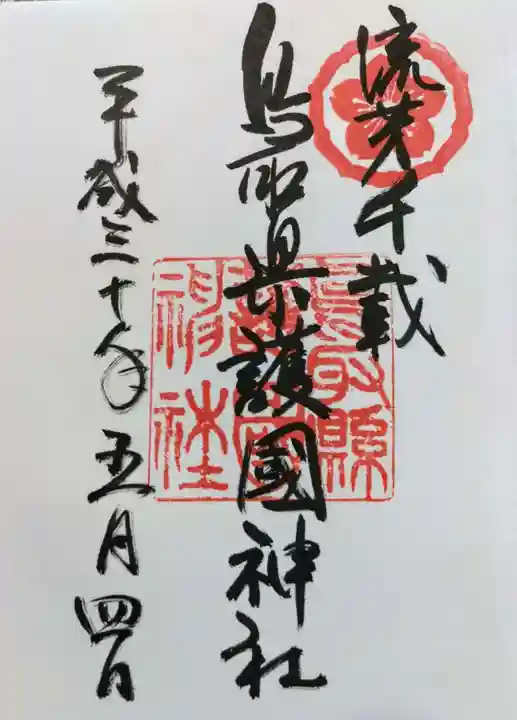 流芳千載
鳥取県護國神社
鳥取縣護國神社
平成三十年五月四日